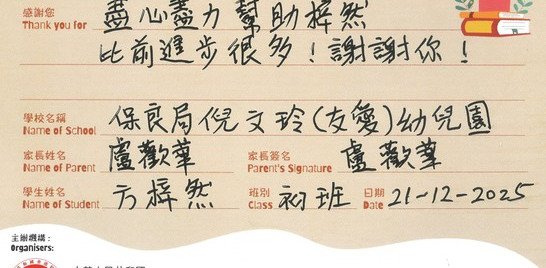 感謝您 盡心盡力幫助梓然
Thank you for
比前進步很多！謝謝你！
學校名稱 保良局倪文玲(友愛)幼兒園
Name of School
家長姓名 盧歡華 家長簽名 盧歡華
Name of Parent Parent's Signature
學生姓名 方梓然 班別 初班 日期 21-12-2025
Name of Student Class Date
主辦機構：
Organisers: